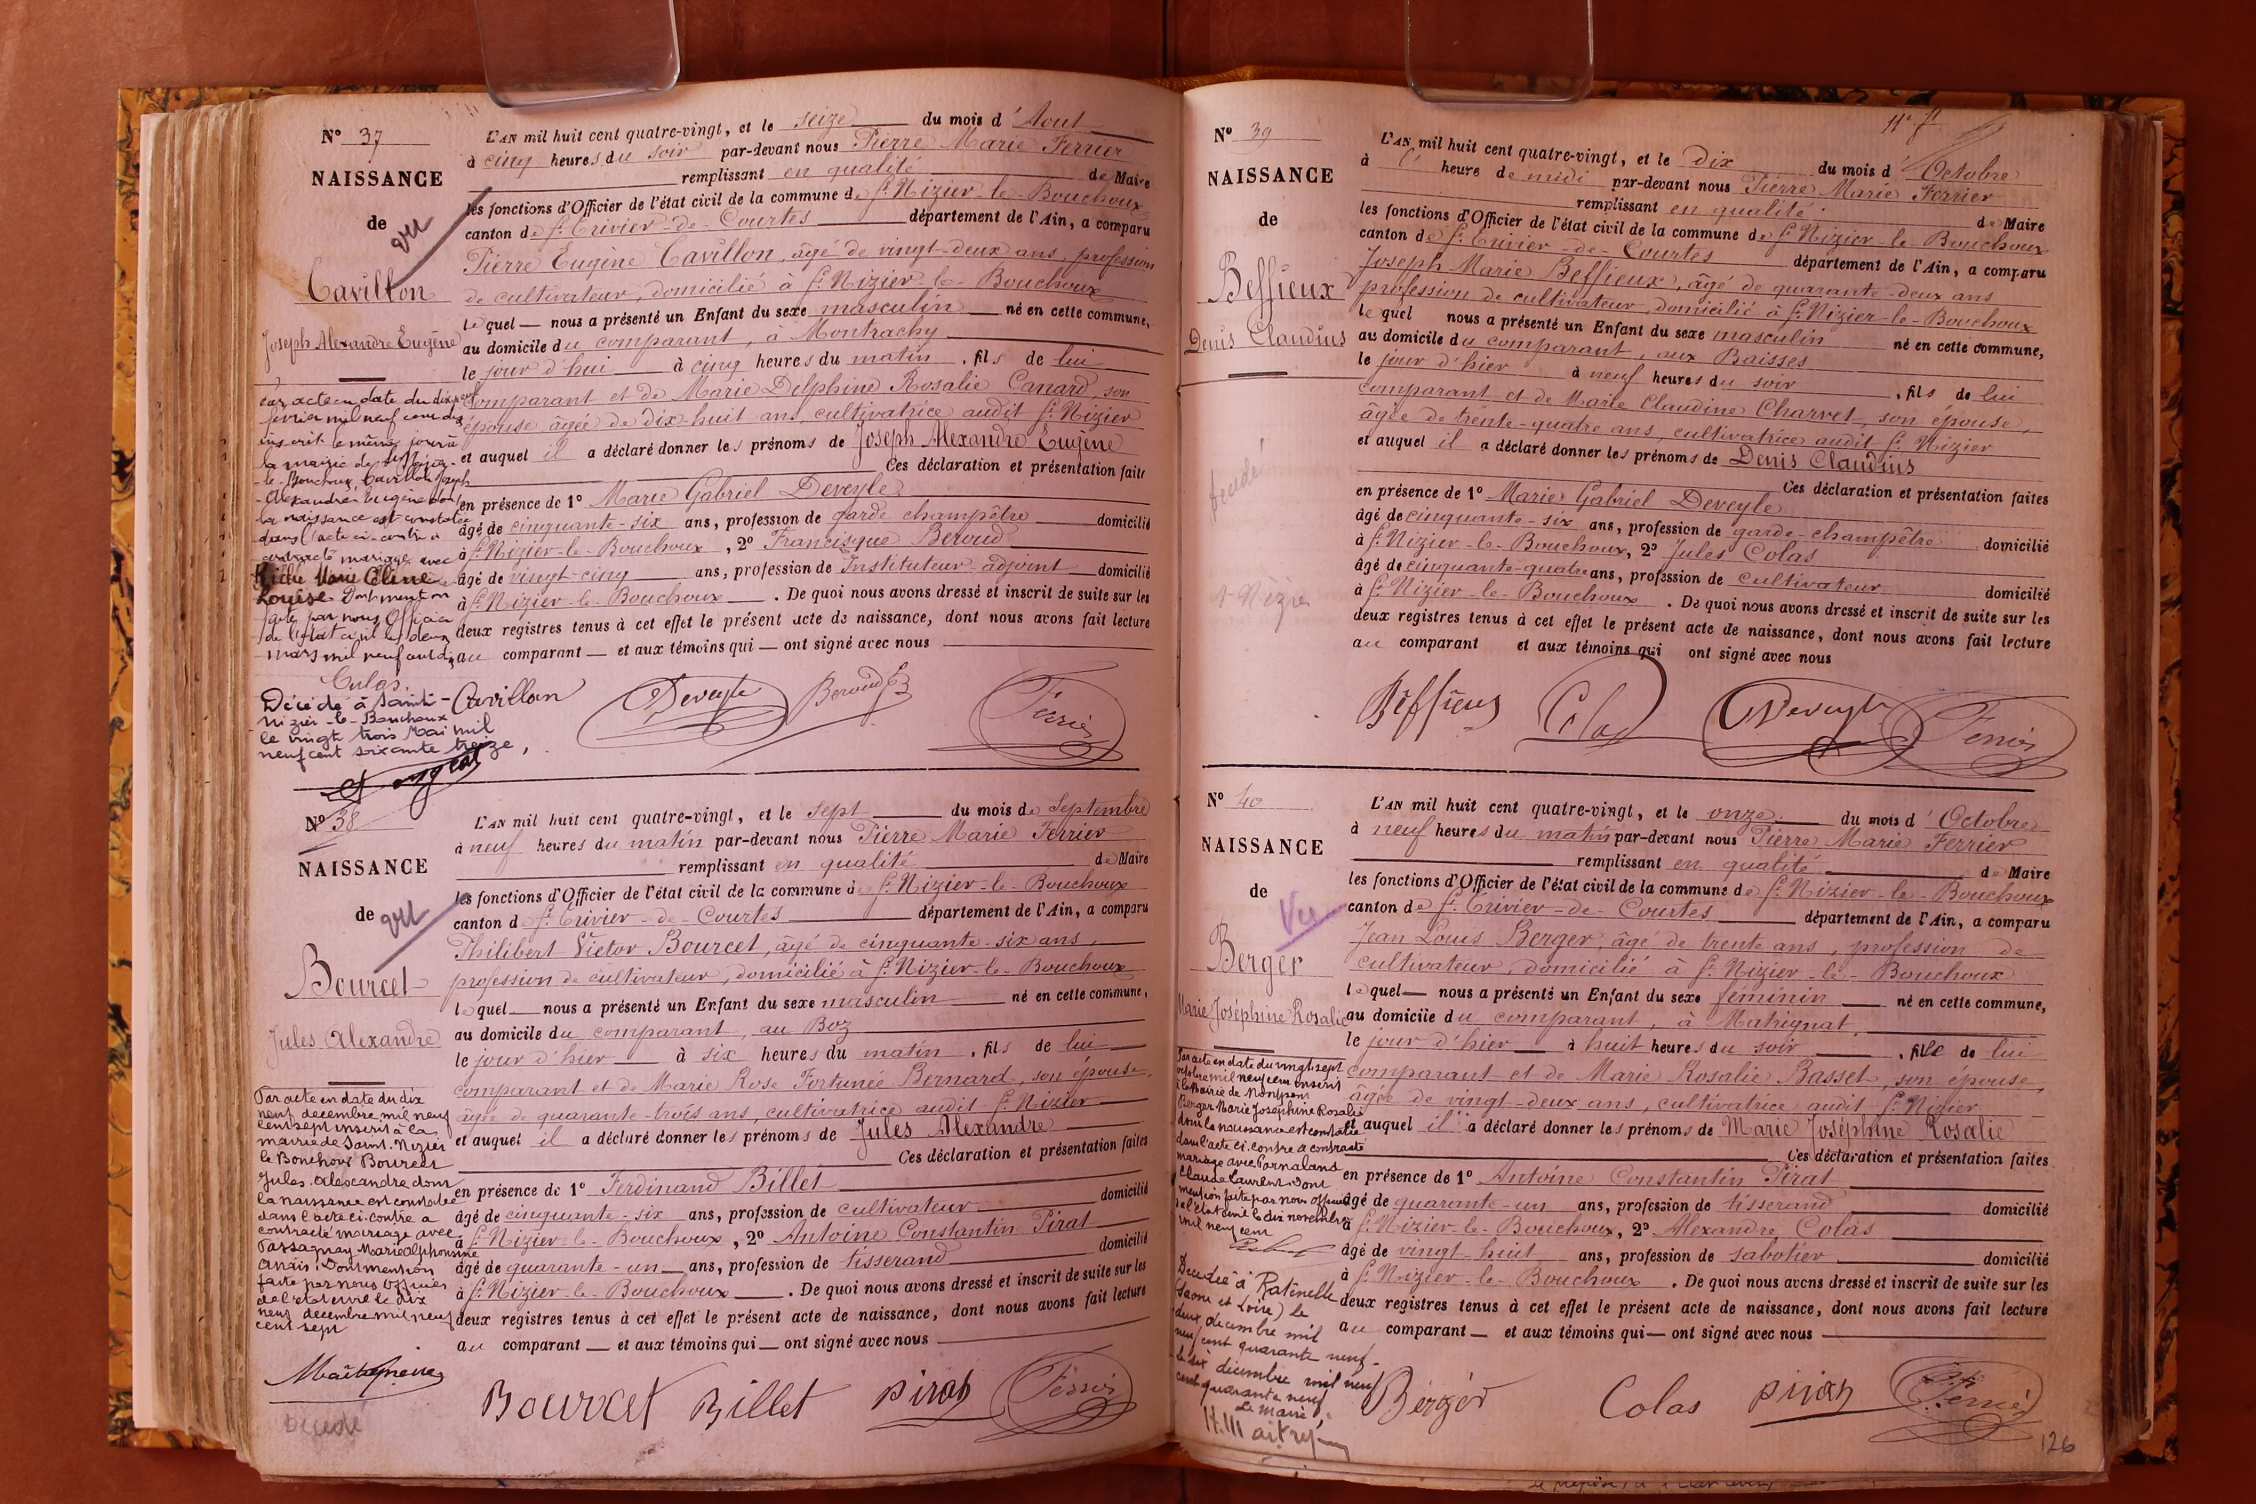 N° 37
NAISSANCE
de
vu
Cavillon
Joseph Alexandre Eugène
L'AN mil huit cent quatre-vingt, et le seize du mois d'Aout
à cinq heures du soir par-devant nous Pierre Marie Ferrier
remplissant en qualité de Maire
les fonctions d'Officier de l'état civil de la commune de St Nizier-le-Bouchoux
canton de St Trivier-de-Courtes département de l'Ain, a comparu
Pierre Eugène Cavillon, âgé de vingt-deux ans, profession
de cultivateur, domicilié à St Nizier-le-Bouchoux
lequel nous a présenté un Enfant du sexe masculin né en cette commune,
au domicile du comparant, à Montrachy
le jour d'hui à cinq heures du matin, fils de lui
comparant et de Marie Delphine Rosalie Canard, son
épouse âgée de dix-huit ans, cultivatrice audit St Nizier
et auquel il a déclaré donner les prénoms de Joseph Alexandre Eugène
Ces déclaration et présentation faite
en présence de 1° Marie Gabriel Deveyle
âgé de cinquante-six ans, profession de garde champêtre domicilié
à St Nizier-le-Bouchoux, 2° Francisque Beroud
âgé de vingt-cinq ans, profession de Instituteur adjoint domicilié
à St Nizier-le-Bouchoux. De quoi nous avons dressé et inscrit de suite sur les
deux registres tenus à cet effet le présent acte de naissance, dont nous avons fait lecture
au comparant et aux témoins qui ont signé avec nous
Cavillon Deveyle Beroud Ferrier
Par acte en date du dix
fevrier mil neuf cent dix
inscrit le même jour à
la mairie de St Nizier-
le-Bouchoux Cavillon Joseph
Alexandre Eugène dont
la naissance est constatée
dans l'acte ci-contre a
contracté mariage avec
Marie Céline
Louise Dont mention
faite par nous Officier
de l'état civil le deux
mars mil neuf cent dix
Colas
Décédé à Saint-
Nizier-le-Bouchoux
le vingt trois Mai mil
neuf cent soixante treize,
N° 38
NAISSANCE
de
vu
Bourcet
Jules Alexandre
L'AN mil huit cent quatre-vingt, et le sept du mois de Septembre
à neuf heures du matin par-devant nous Pierre Marie Ferrier
remplissant en qualité de Maire
les fonctions d'Officier de l'état civil de la commune de St Nizier-le-Bouchoux
canton de St Trivier-de-Courtes département de l'Ain, a comparu
Philibert Victor Bourcet, âgé de cinquante-six ans,
profession de cultivateur, domicilié à St Nizier-le-Bouchoux
lequel nous a présenté un Enfant du sexe masculin né en cette commune,
au domicile du comparant, au Boz
le jour d'hier à six heures du matin, fils de lui
comparant et de Marie Rose Fortunée Bernard, son épouse,
âgée de quarante-trois ans, cultivatrice audit St Nizier
et auquel il a déclaré donner les prénoms de Jules Alexandre
Ces déclaration et présentation faites
en présence de 1° Ferdinand Billet
âgé de cinquante-six ans, profession de cultivateur domicilié
à St Nizier-le-Bouchoux, 2° Antoine Constantin Pirat
âgé de quarante-un ans, profession de tisserand domicilié
à St Nizier-le-Bouchoux. De quoi nous avons dressé et inscrit de suite sur les
deux registres tenus à cet effet le présent acte de naissance, dont nous avons fait lecture
au comparant et aux témoins qui ont signé avec nous
Bourcet Billet Pirat Ferrier
Par acte en date du dix
neuf decembre mil neuf
cent sept inscrit à la
mairie de Saint-Nizier
le Bouchoux Bourcet
Jules Alexandre dont
la naissance est constatée
dans l'acte ci-contre a
contracté mariage avec
Passaquay Marie Alphonsine
Anaïs. Dont mention
faite par nous Officier
de l'etat civil le dix
neuf decembre mil neuf
cent sept
Décédé
N° 39
NAISSANCE
de
Beffieux
Denis Claudius
décédé
St Nizier
L'AN mil huit cent quatre-vingt, et le dix du mois d'Octobre
à heure de midi par-devant nous Pierre Marie Ferrier
remplissant en qualité de Maire
les fonctions d'Officier de l'état civil de la commune de St Nizier-le-Bouchoux
canton de St Trivier-de-Courtes département de l'Ain, a comparu
Joseph Marie Beffieux, âgé de quarante-deux ans
profession de cultivateur, domicilié à St Nizier-le-Bouchoux
lequel nous a présenté un Enfant du sexe masculin né en cette commune,
au domicile du comparant, aux Baisses
le jour d'hier à neuf heures du soir, fils de lui
comparant et de Marie Claudine Charvet, son épouse,
âgée de trente-quatre ans, cultivatrice audit St Nizier
et auquel il a déclaré donner les prénoms de Denis Claudius
Ces déclaration et présentation faites
en présence de 1° Marie Gabriel Deveyle
âgé de cinquante-six ans, profession de garde-champêtre domicilié
à St Nizier-le-Bouchoux, 2° Jules Colas
âgé de cinquante-quatre ans, profession de cultivateur domicilié
à St Nizier-le-Bouchoux. De quoi nous avons dressé et inscrit de suite sur les
deux registres tenus à cet effet le présent acte de naissance, dont nous avons fait lecture
au comparant et aux témoins qui ont signé avec nous
Beffieux Colas Deveyle Ferrier
N° 40
NAISSANCE
de
Vu
Berger
Marie Joséphine Rosalie
L'AN mil huit cent quatre-vingt, et le onze du mois d'Octobre
à neuf heures du matin par-devant nous Pierre Marie Ferrier
remplissant en qualité de Maire
les fonctions d'Officier de l'état civil de la commune de St Nizier-le-Bouchoux
canton de St Trivier-de-Courtes département de l'Ain, a comparu
Jean Louis Berger, âgé de trente ans, profession de
cultivateur, domicilié à St Nizier-le-Bouchoux
lequel nous a présenté un Enfant du sexe féminin né en cette commune,
au domicile du comparant, à Matrignat
le jour d'hier à huit heures du soir, fille de lui
comparant et de Marie Rosalie Basset, son épouse,
âgée de vingt-deux ans, cultivatrice audit St Nizier
et auquel il a déclaré donner les prénoms de Marie Joséphine Rosalie
Ces déclaration et présentation faites
en présence de 1° Antoine Constantin Pirat
âgé de quarante-un ans, profession de tisserand domicilié
à St Nizier-le-Bouchoux, 2° Alexandre Colas
âgé de vingt-huit ans, profession de sabotier domicilié
à St Nizier-le-Bouchoux. De quoi nous avons dressé et inscrit de suite sur les
deux registres tenus à cet effet le présent acte de naissance, dont nous avons fait lecture
au comparant et aux témoins qui ont signé avec nous
Berger Colas Pirat Ferrier
Par acte en date du vingt sept
octobre mil neuf cent inscrit
à la Mairie de
Berger Marie Joséphine Rosalie
dont la naissance est constatée
dans l'acte ci-contre a contracté
mariage avec Parnaland
Claude Laurent. Dont
mention faite par nous officier
de l'état civil le dix novembre
mil neuf cent
Décédée à Ratenelle
(Saone et Loire) le
deux décembre mil
neuf cent quarante neuf.
le six décembre mil neuf
cent quarante neuf
Le Maire
126